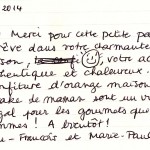 2014
Merci pour cette petite pa
êve dans votre charmante
son, votre ac
hentique et chaleureux.
nfiture d'orange maison
ake de maman sont un v
gal pour les gourmets que
ommes! A bientôt!
François et Marie-Paul